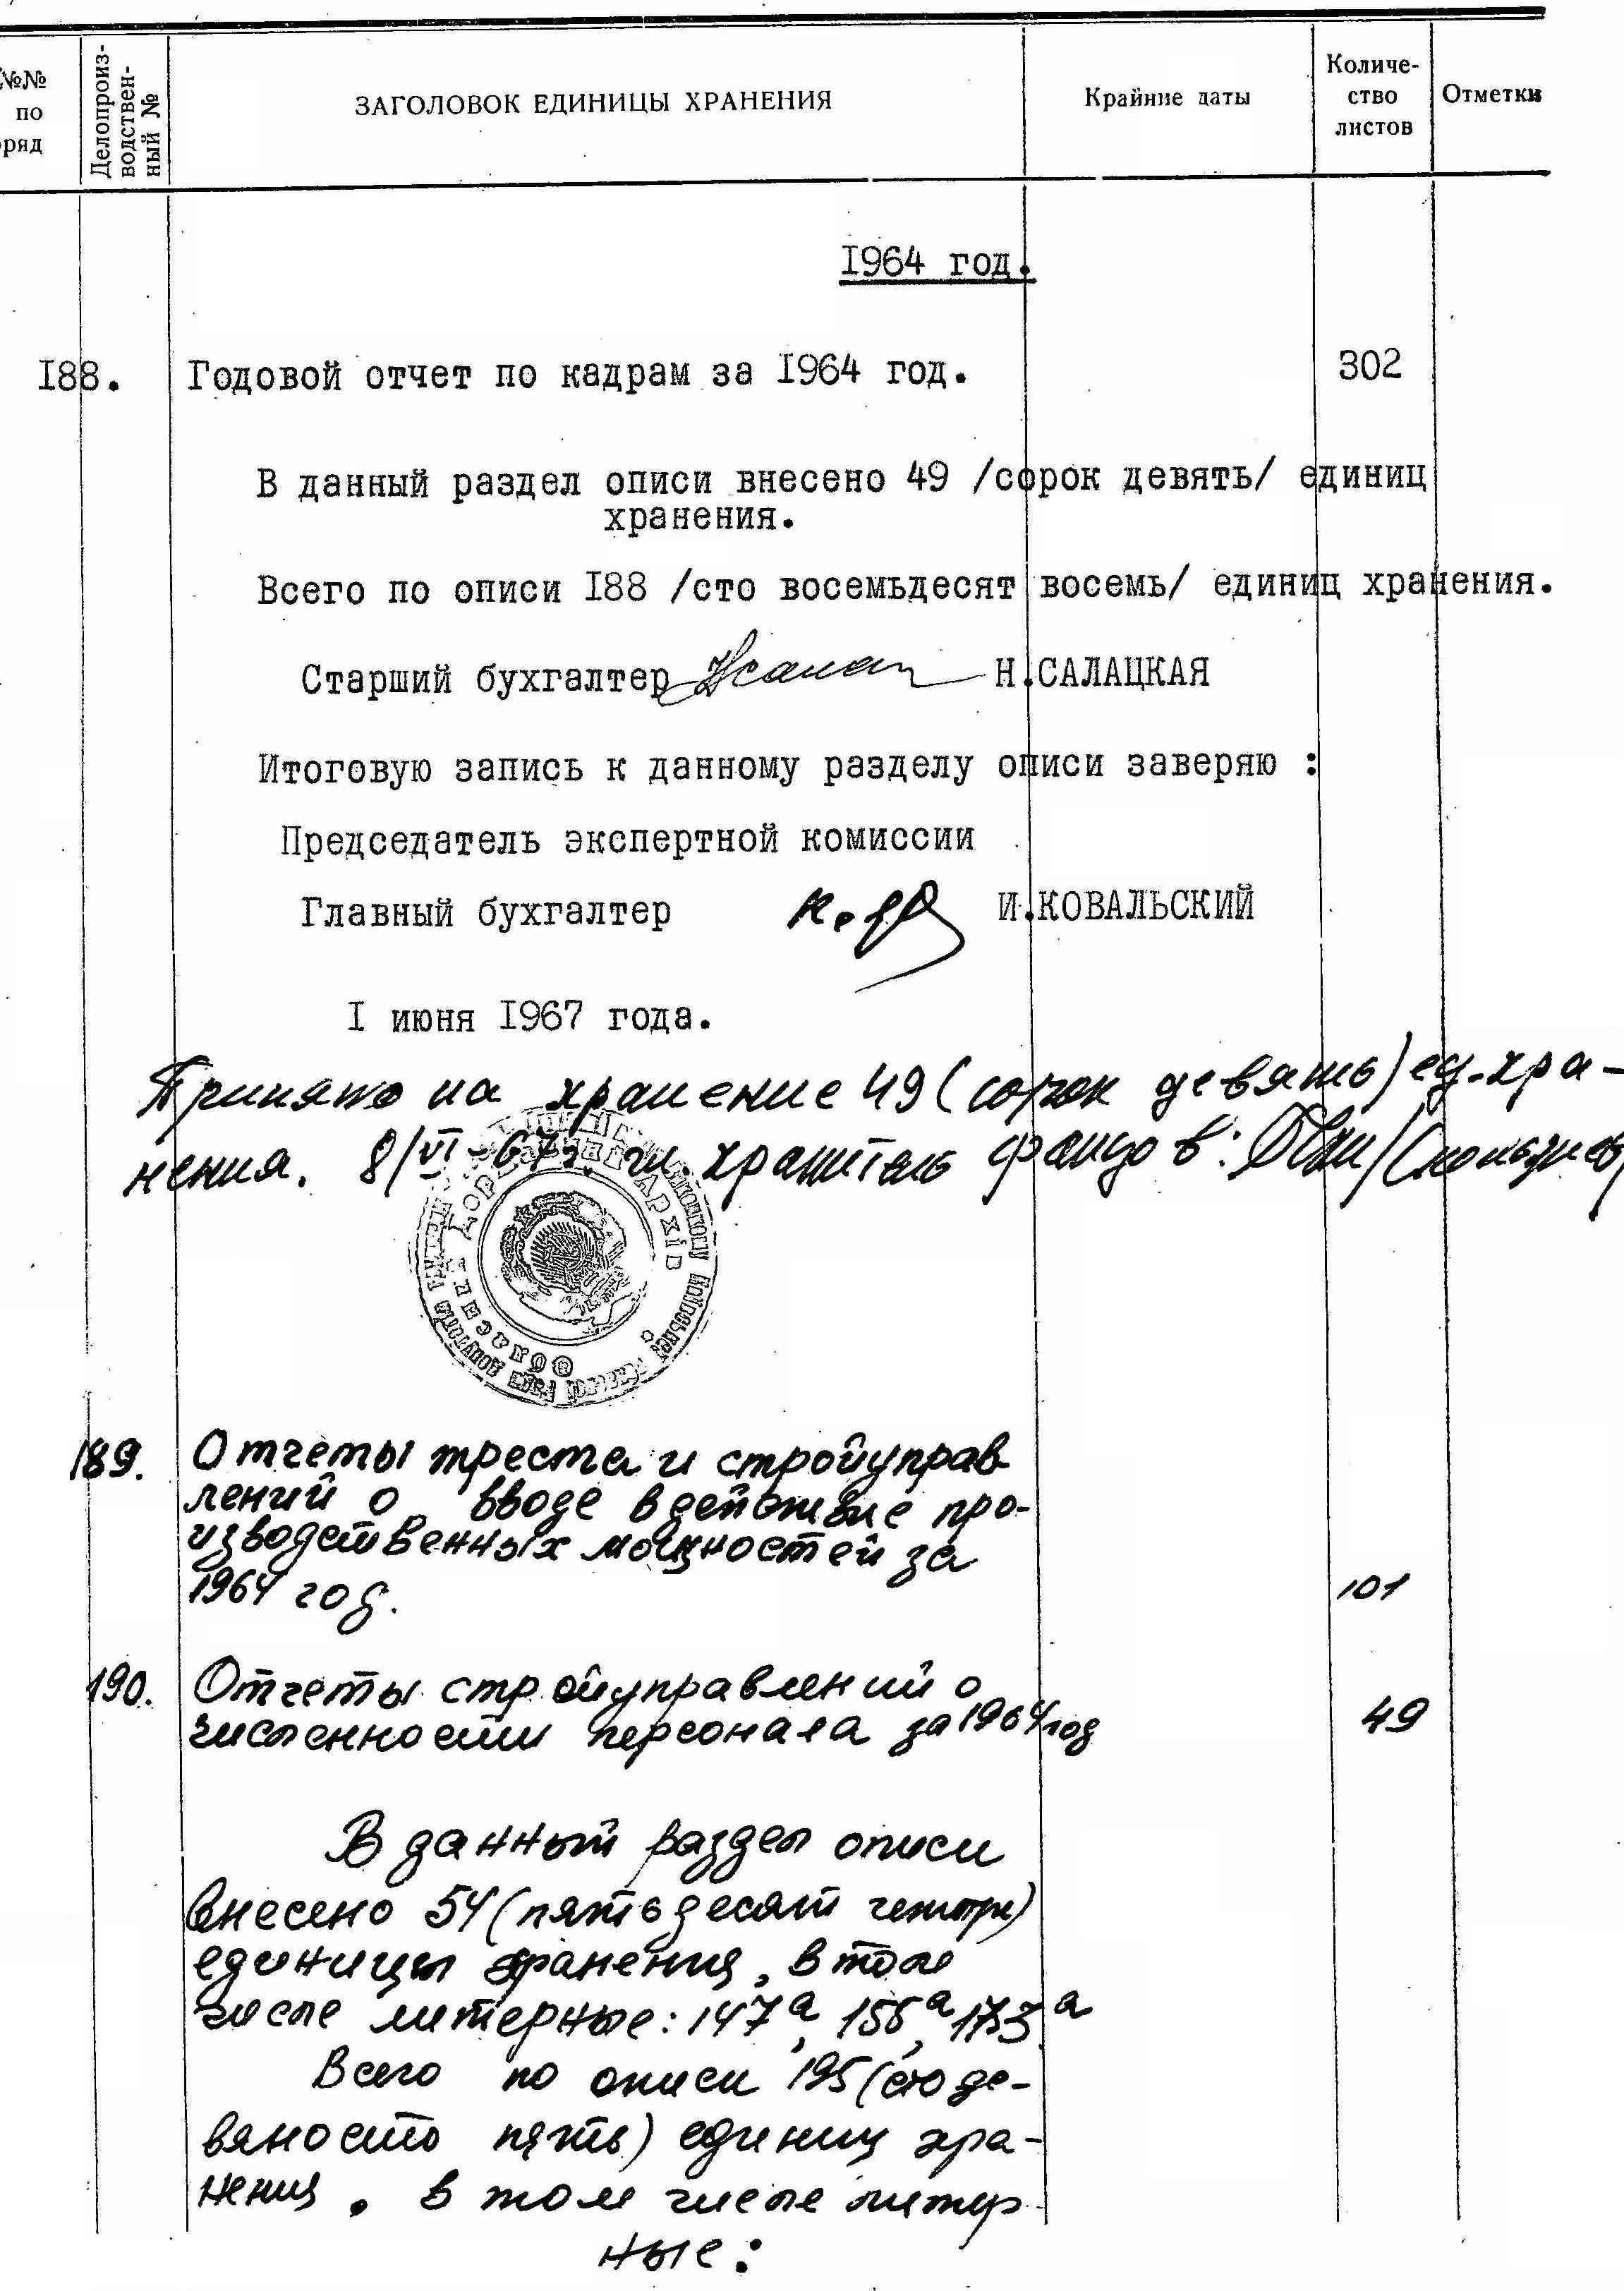 №№
по
ряд
Делопроиз-
водствен-
ный №
ЗАГОЛОВОК ЕДИНИЦЫ ХРАНЕНИЯ
Крайние даты
Количе-
ство
листов
Отметки
1964 год.
188. Годовой отчет по кадрам за 1964 год. 302
В данный раздел описи внесено 49 /сорок девять/ единиц
хранения.
Всего по описи 188 /сто восемьдесят восемь/ единиц хранения.
Старший бухгалтер Н.САЛАЦКАЯ
Итоговую запись к данному разделу описи заверяю :
Председатель экспертной комиссии
Главный бухгалтер И.КОВАЛЬСКИЙ
1 июня 1967 года.
Принято на хранение 49 (сорок девять) ед. хра-
нения. 8/VI-67г. хранитель фондов:
Обласний
архів
189. Отчеты треста и стройуправ
лений о вводе в действие про-
изводственных мощностей за
1964 год. 101
190. Отчеты стройуправлений о
численности персонала за 1964 год 49
В данный раздел описи
внесено 54 (пятьдесят четыре)
единицы хранения, в том
числе литерные: 147а, 156а, 173а
Всего по описи 195 (сто де-
вяносто пять) единиц хра-
нения, в том числе литер
ные: